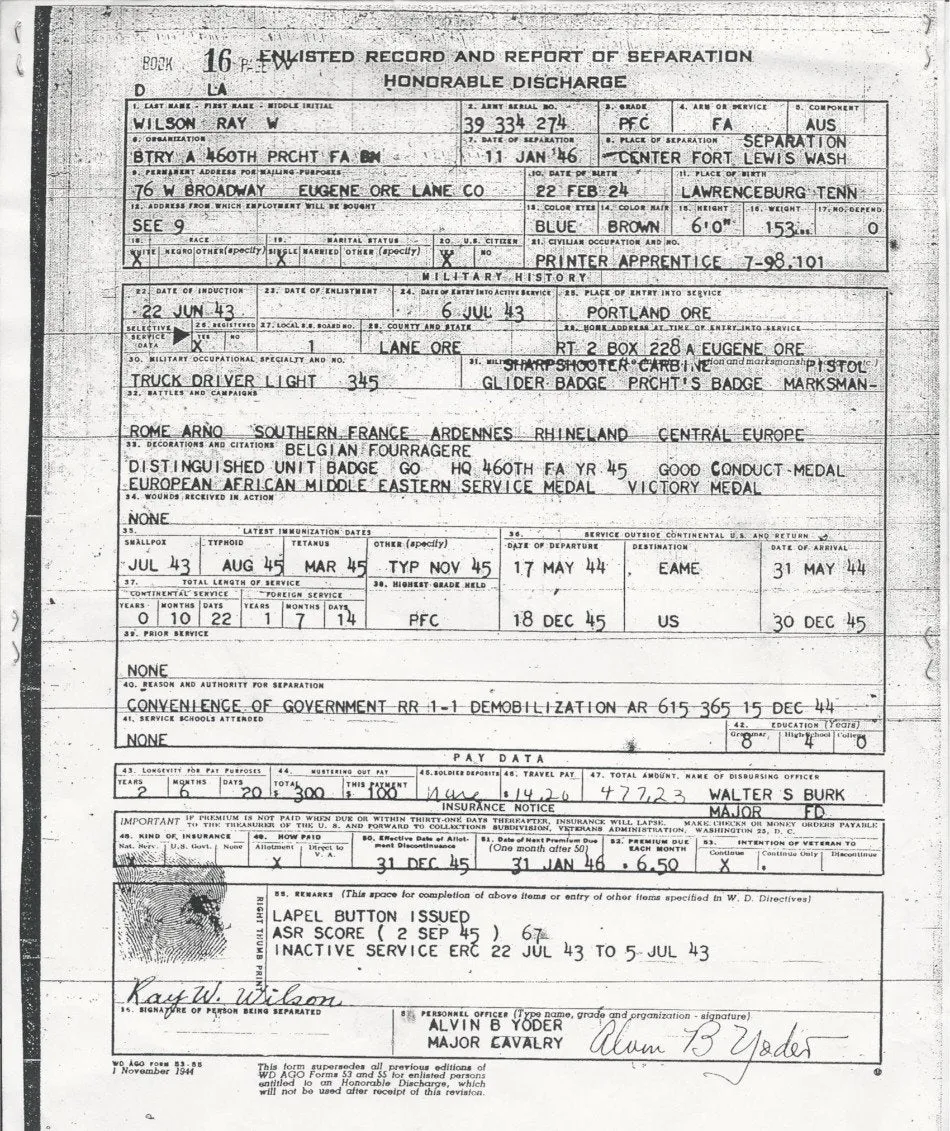 BOOK 16 PAGE
ENLISTED RECORD AND REPORT OF SEPARATION
HONORABLE DISCHARGE
D LA
1. LAST NAME - FIRST NAME - MIDDLE INITIAL 2. ARMY SERIAL NO. 3. GRADE 4. ARM OR SERVICE 5. COMPONENT
WILSON RAY W 39 334 274 PFC FA AUS
6. ORGANIZATION 7. DATE OF SEPARATION 8. PLACE OF SEPARATION SEPARATION
BTRY A 460TH PRCHT FA BN 11 JAN 46 CENTER FORT LEWIS WASH
9. PERMANENT ADDRESS FOR MAILING PURPOSES 10. DATE OF BIRTH 11. PLACE OF BIRTH
76 W BROADWAY EUGENE ORE LANE CO 22 FEB 24 LAWRENCEBURG TENN
12. ADDRESS FROM WHICH EMPLOYMENT WILL BE SOUGHT 13. COLOR EYES 14. COLOR HAIR 15. HEIGHT 16. WEIGHT 17. NO. DEPEND.
SEE 9 BLUE BROWN 6'0" 153 LBS. 0
18. RACE 19. MARITAL STATUS 20. U.S. CITIZEN 21. CIVILIAN OCCUPATION AND NO.
WHITE NEGRO OTHER (specify) SINGLE MARRIED OTHER (specify) YES NO
X X X PRINTER APPRENTICE 7-98.101
MILITARY HISTORY
22. DATE OF INDUCTION 23. DATE OF ENLISTMENT 24. DATE OF ENTRY INTO ACTIVE SERVICE 25. PLACE OF ENTRY INTO SERVICE
22 JUN 43 6 JUL 43 PORTLAND ORE
SELECTIVE SERVICE DATA 26. REGISTERED YES NO 27. LOCAL S.S. BOARD NO. 28. COUNTY AND STATE 29. HOME ADDRESS AT TIME OF ENTRY INTO SERVICE
X 1 LANE ORE RT 2 BOX 228 A EUGENE ORE
30. MILITARY OCCUPATIONAL SPECIALTY AND NO. 31. SHARPSHOOTER CARBINE PISTOL
TRUCK DRIVER LIGHT 345 GLIDER BADGE PRCHT'S BADGE MARKSMAN-
32. BATTLES AND CAMPAIGNS
ROME ARNO SOUTHERN FRANCE ARDENNES RHINELAND CENTRAL EUROPE
33. DECORATIONS AND CITATIONS BELGIAN FOURRAGERE
DISTINGUISHED UNIT BADGE GO HQ 460TH FA YR 45 GOOD CONDUCT MEDAL
EUROPEAN AFRICAN MIDDLE EASTERN SERVICE MEDAL VICTORY MEDAL
34. WOUNDS RECEIVED IN ACTION
NONE
35. LATEST IMMUNIZATION DATES 36. SERVICE OUTSIDE CONTINENTAL U.S. AND RETURN
SMALLPOX TYPHOID TETANUS OTHER (specify) DATE OF DEPARTURE DESTINATION DATE OF ARRIVAL
JUL 43 AUG 45 MAR 45 TYP NOV 45 17 MAY 44 EAME 31 MAY 44
37. TOTAL LENGTH OF SERVICE 38. HIGHEST GRADE HELD
CONTINENTAL SERVICE FOREIGN SERVICE
YEARS MONTHS DAYS YEARS MONTHS DAYS
0 10 22 1 7 14 PFC 18 DEC 45 US 30 DEC 45
39. PRIOR SERVICE
NONE
40. REASON AND AUTHORITY FOR SEPARATION
CONVENIENCE OF GOVERNMENT RR 1-1 DEMOBILIZATION AR 615 365 15 DEC 44
41. SERVICE SCHOOLS ATTENDED 42. EDUCATION (Years)
Grammar High School College
NONE 8 4 0
PAY DATA
43. LONGEVITY FOR PAY PURPOSES 44. MUSTERING OUT PAY 45. SOLDIER DEPOSITS 46. TRAVEL PAY 47. TOTAL AMOUNT, NAME OF DISBURSING OFFICER
YEARS MONTHS DAYS TOTAL THIS PAYMENT
2 6 20 $ 300 $ 100 None $ 14.20 477.23 WALTER S BURK
INSURANCE NOTICE MAJOR FD
IMPORTANT IF PREMIUM IS NOT PAID WHEN DUE OR WITHIN THIRTY-ONE DAYS THEREAFTER, INSURANCE WILL LAPSE. MAKE CHECKS OR MONEY ORDERS PAYABLE
TO THE TREASURER OF THE U. S. AND FORWARD TO COLLECTIONS SUBDIVISION, VETERANS ADMINISTRATION, WASHINGTON 25, D. C.
48. KIND OF INSURANCE 49. HOW PAID 50. Effective Date of Allotment Discontinuance 51. Date of Next Premium Due (One month after 50) 52. PREMIUM DUE EACH MONTH 53. INTENTION OF VETERAN TO
Nat. Serv. U.S. Govt. None Allotment Direct to V. A. Continue Continue Only Discontinue
X X 31 DEC 45 31 JAN 46 $ 6.50 X $
RIGHT THUMB PRINT
55. REMARKS (This space for completion of above items or entry of other items specified in W. D. Directives)
LAPEL BUTTON ISSUED
ASR SCORE ( 2 SEP 45 ) 67
INACTIVE SERVICE ERC 22 JUL 43 TO 5 JUL 43
Ray W. Wilson
SIGNATURE OF PERSON BEING SEPARATED
PERSONNEL OFFICER (Type name, grade and organization - signature)
ALVIN B YODER
MAJOR CAVALRY Alvin B Yoder
WD AGO FORM 53-55
1 November 1944
This form supersedes all previous editions of
WD AGO Forms 53 and 55 for enlisted persons
entitled to an Honorable Discharge, which
will not be used after receipt of this revision.